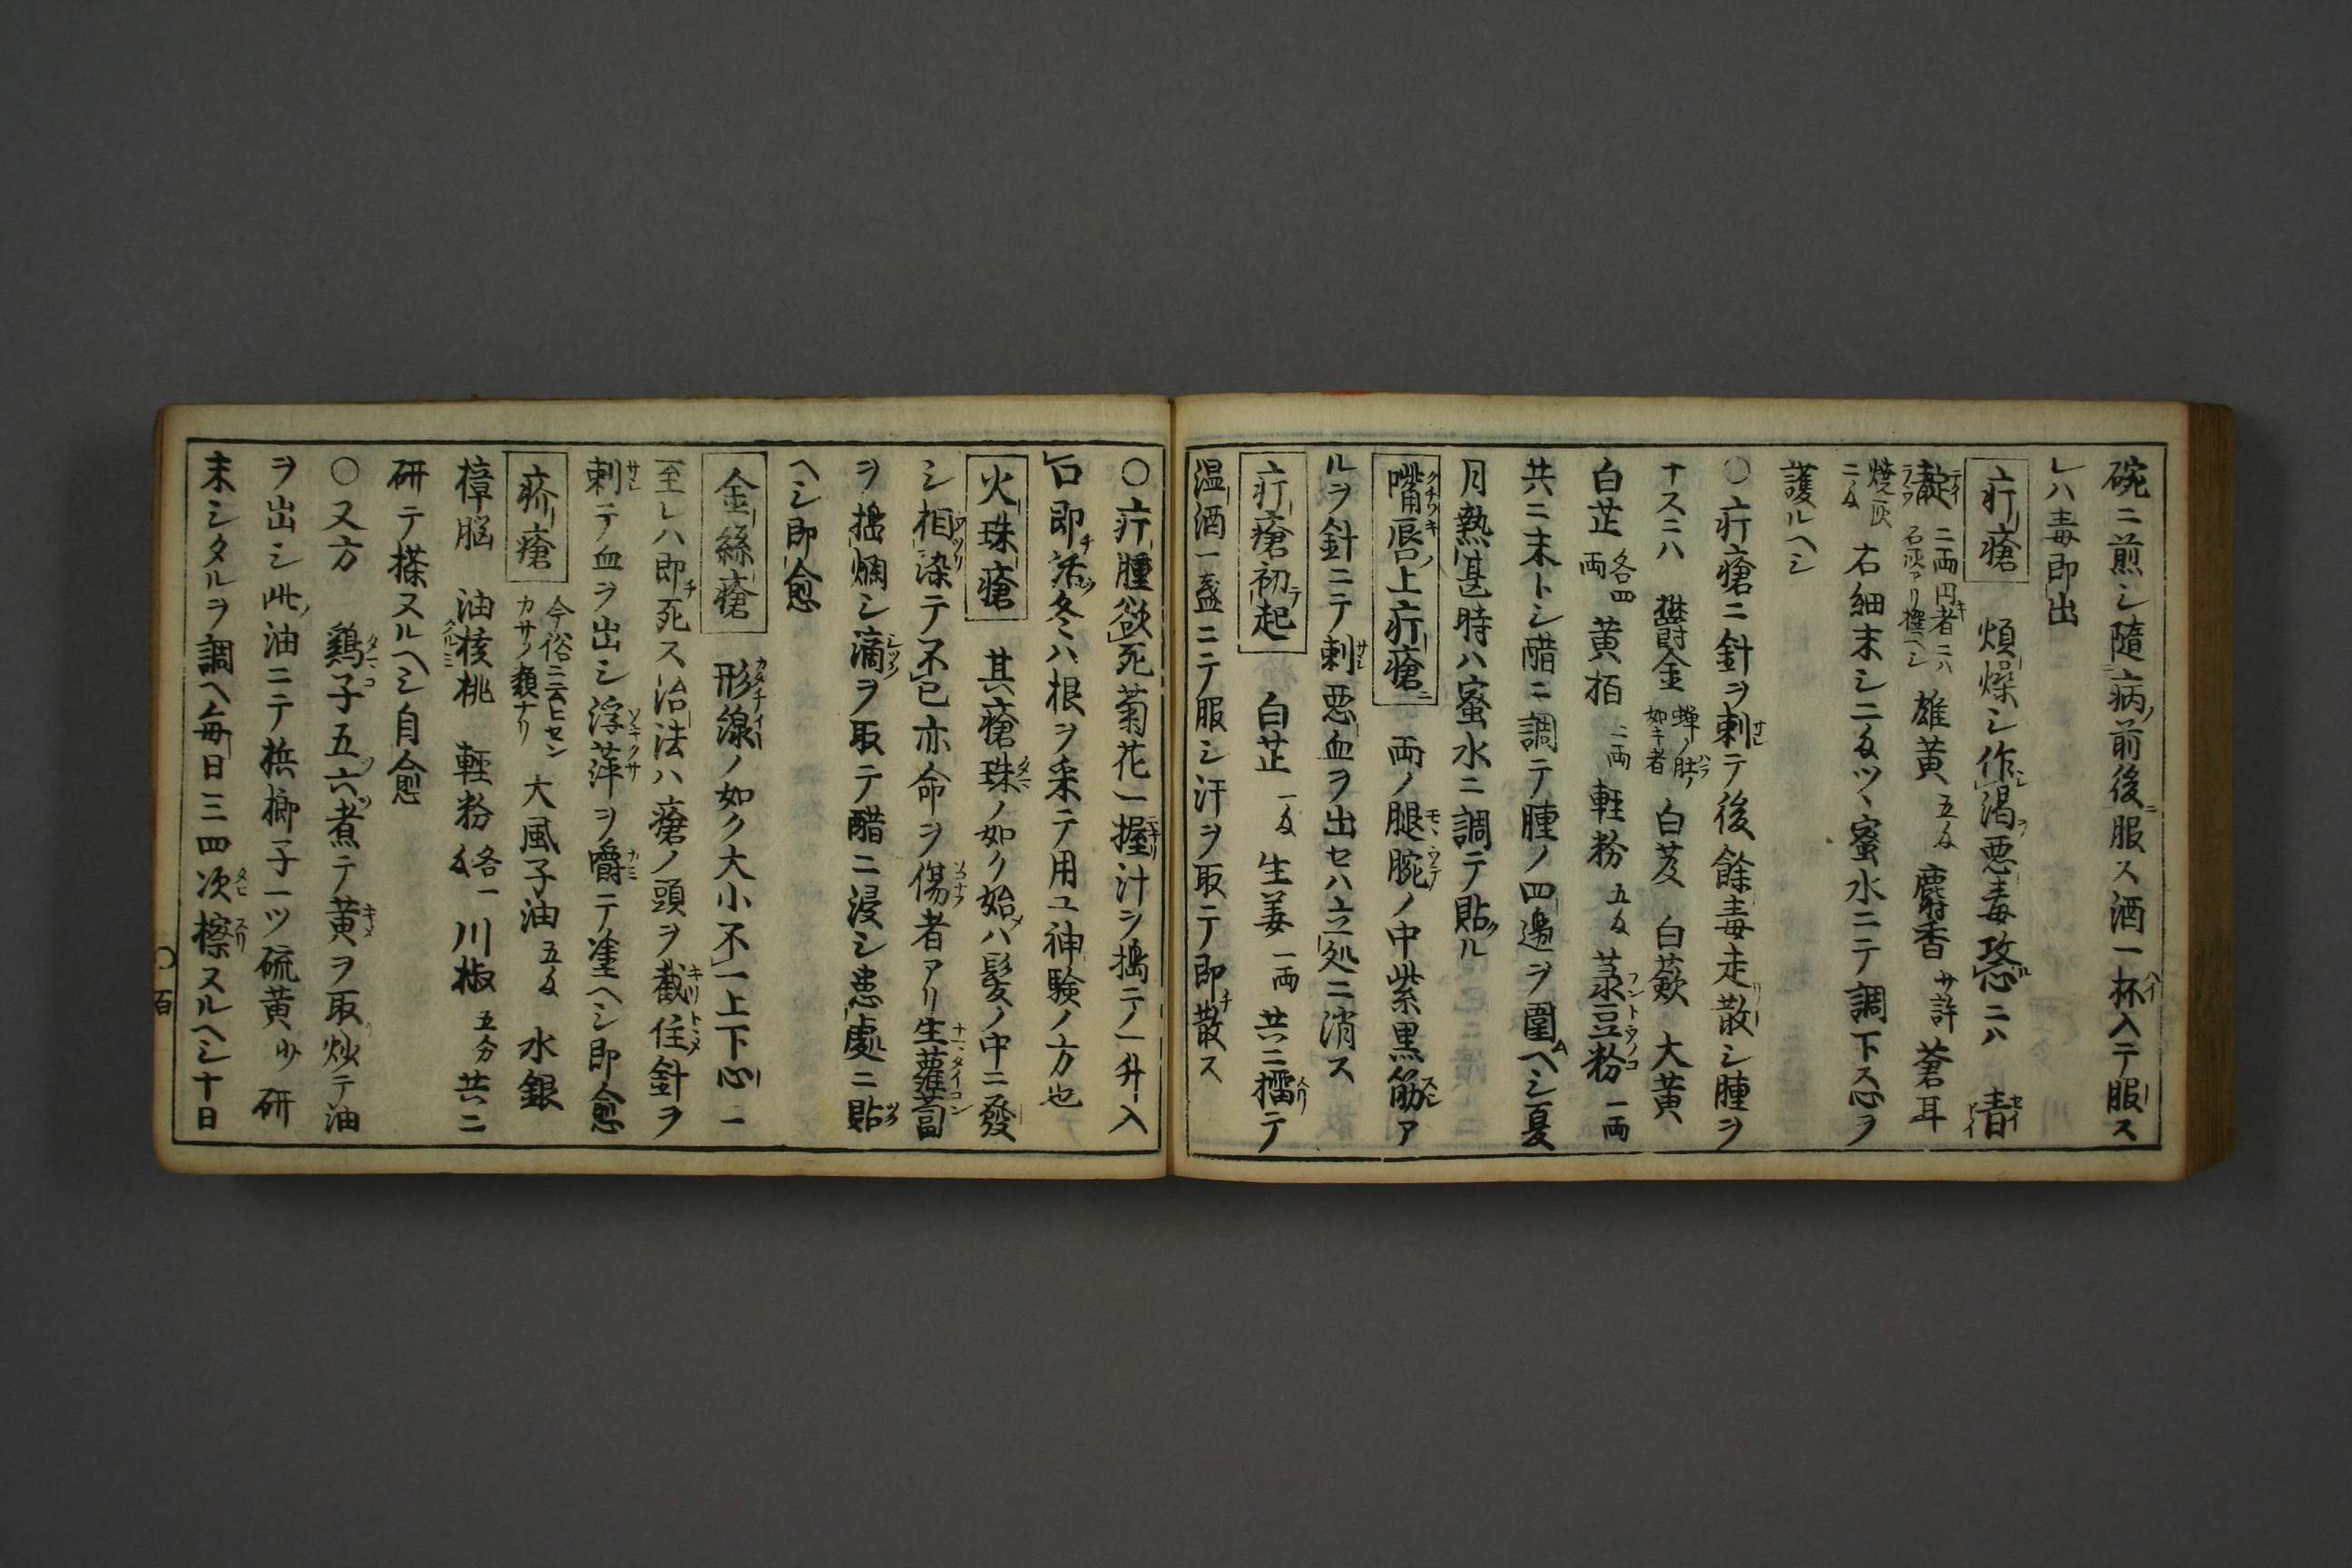 碗ニ煎シ隨病ノ前後ニ服ス酒一杯入テ服ス
レハ毒即出
疔瘡 煩燥シ作渇ヲ悪毒攻心ルニハ 青
靛 二両円キ者ニハ石灰アリ擇ヘシ 雄黄 五匁 麝香 少許 蒼耳
焼灰二匁 右細末シ二匁ツヽ蜜水ニテ調下ス心ヲ
護ルヘシ
○疔瘡ニ針ヲ刺テ後餘毒走散シ腫ヲ
ナスニハ 欝金 蝉ノ肚ノ如キ者 白芨 白蘞 大黄
白芷 各四両 黄栢 二両 軽粉 五匁 菉豆粉 一両
共ニ末トシ醋ニ調テ腫ノ四邉ヲ圍ヘシ夏
月熱甚時ハ蜜水ニ調テ貼ル
嘴唇ノ上疔瘡ニ 両ノ腿腕ノ中紫黒筋ア
ルヲ針ニテ刺悪血ヲ出セハ立処ニ消ス
疔瘡初テ起 白芷 一匁 生姜 一両 共ニ擂テ
温酒一盞ニテ服シ汗ヲ取テ即チ散ス
○疔腫欲死菊花一握汁ヲ搗テ一升入
口即チ活ツ冬ハ根ヲ采テ用ユ神験ノ方也
火珠瘡 其瘡珠ノ如ク始メハ髪ノ中ニ發
シ相染テ不已亦命ヲ傷者アリ生蘿蔔
ヲ搗爛シ滴ヲ取テ醋ニ浸シ患處ニ貼
ヘシ即愈
金絲瘡 形線ノ如ク大小不一上下心ニ
至レハ即チ死ス治法ハ瘡ノ頭ヲ截住針ヲ
刺テ血ヲ出シ浮萍ヲ嚼ニテ塗ヘシ即愈
疥瘡 今俗ニ云ヒセンカサノ類ナリ 大風子油 五匁 水銀
樟脳 油核桃 軽粉 各一匁 川椒 五分 共ニ
研テ搽スルヘシ自愈
○又方 鶏子五ツ六ツ煮テ黄ヲ取炒テ油
ヲ出シ此ノ油ニテ梹榔子一ツ硫黄 少 研
末シタルヲ調ヘ毎日三四次擦スルヘシ十日
○百